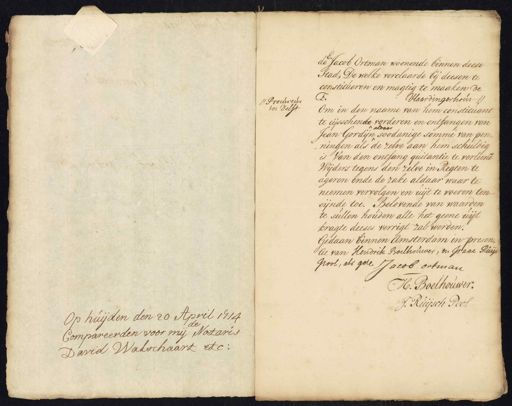 Op huijden den 20 April 1714
Compareerden voor mij Notaris
David Walschaart etc:
de
de Jacob Ortman woonende binnen deese
Stad, De welke verclaarde bij deesen te
constitueren en magtig te maaken de
Procureur
tot Delft
Om in den naame van hem constituant
te eijsschen vorderen en ontfangen van
Jean Gordijn alsoodanige somme van pen-
ningen als de zelve aan hem schuldig
is Van den ontfang quitantie te verleenen
Wijders tegens den zelve in Regten te
ageren ende de zake aldaar waar te
neemen vervolgen en uijt te voeren ten
eijnde toe. Belovende van waarden
te sullen houden alle het geene uijt
kragte deeses verrigt zal worden.
Gedaan binnen Amsterdam in presen-
tie van Hendrik Boelhouwer, en
Pool, als getn
Jacob ortman
H. Boelhouwer.
J: Ruijsch Pool